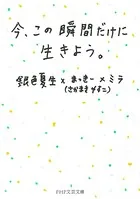 今、この瞬間だけに
生きよう。
銀色夏生 × まっきー × ミラ
(さかまきゆきこ)
PHP文芸文庫